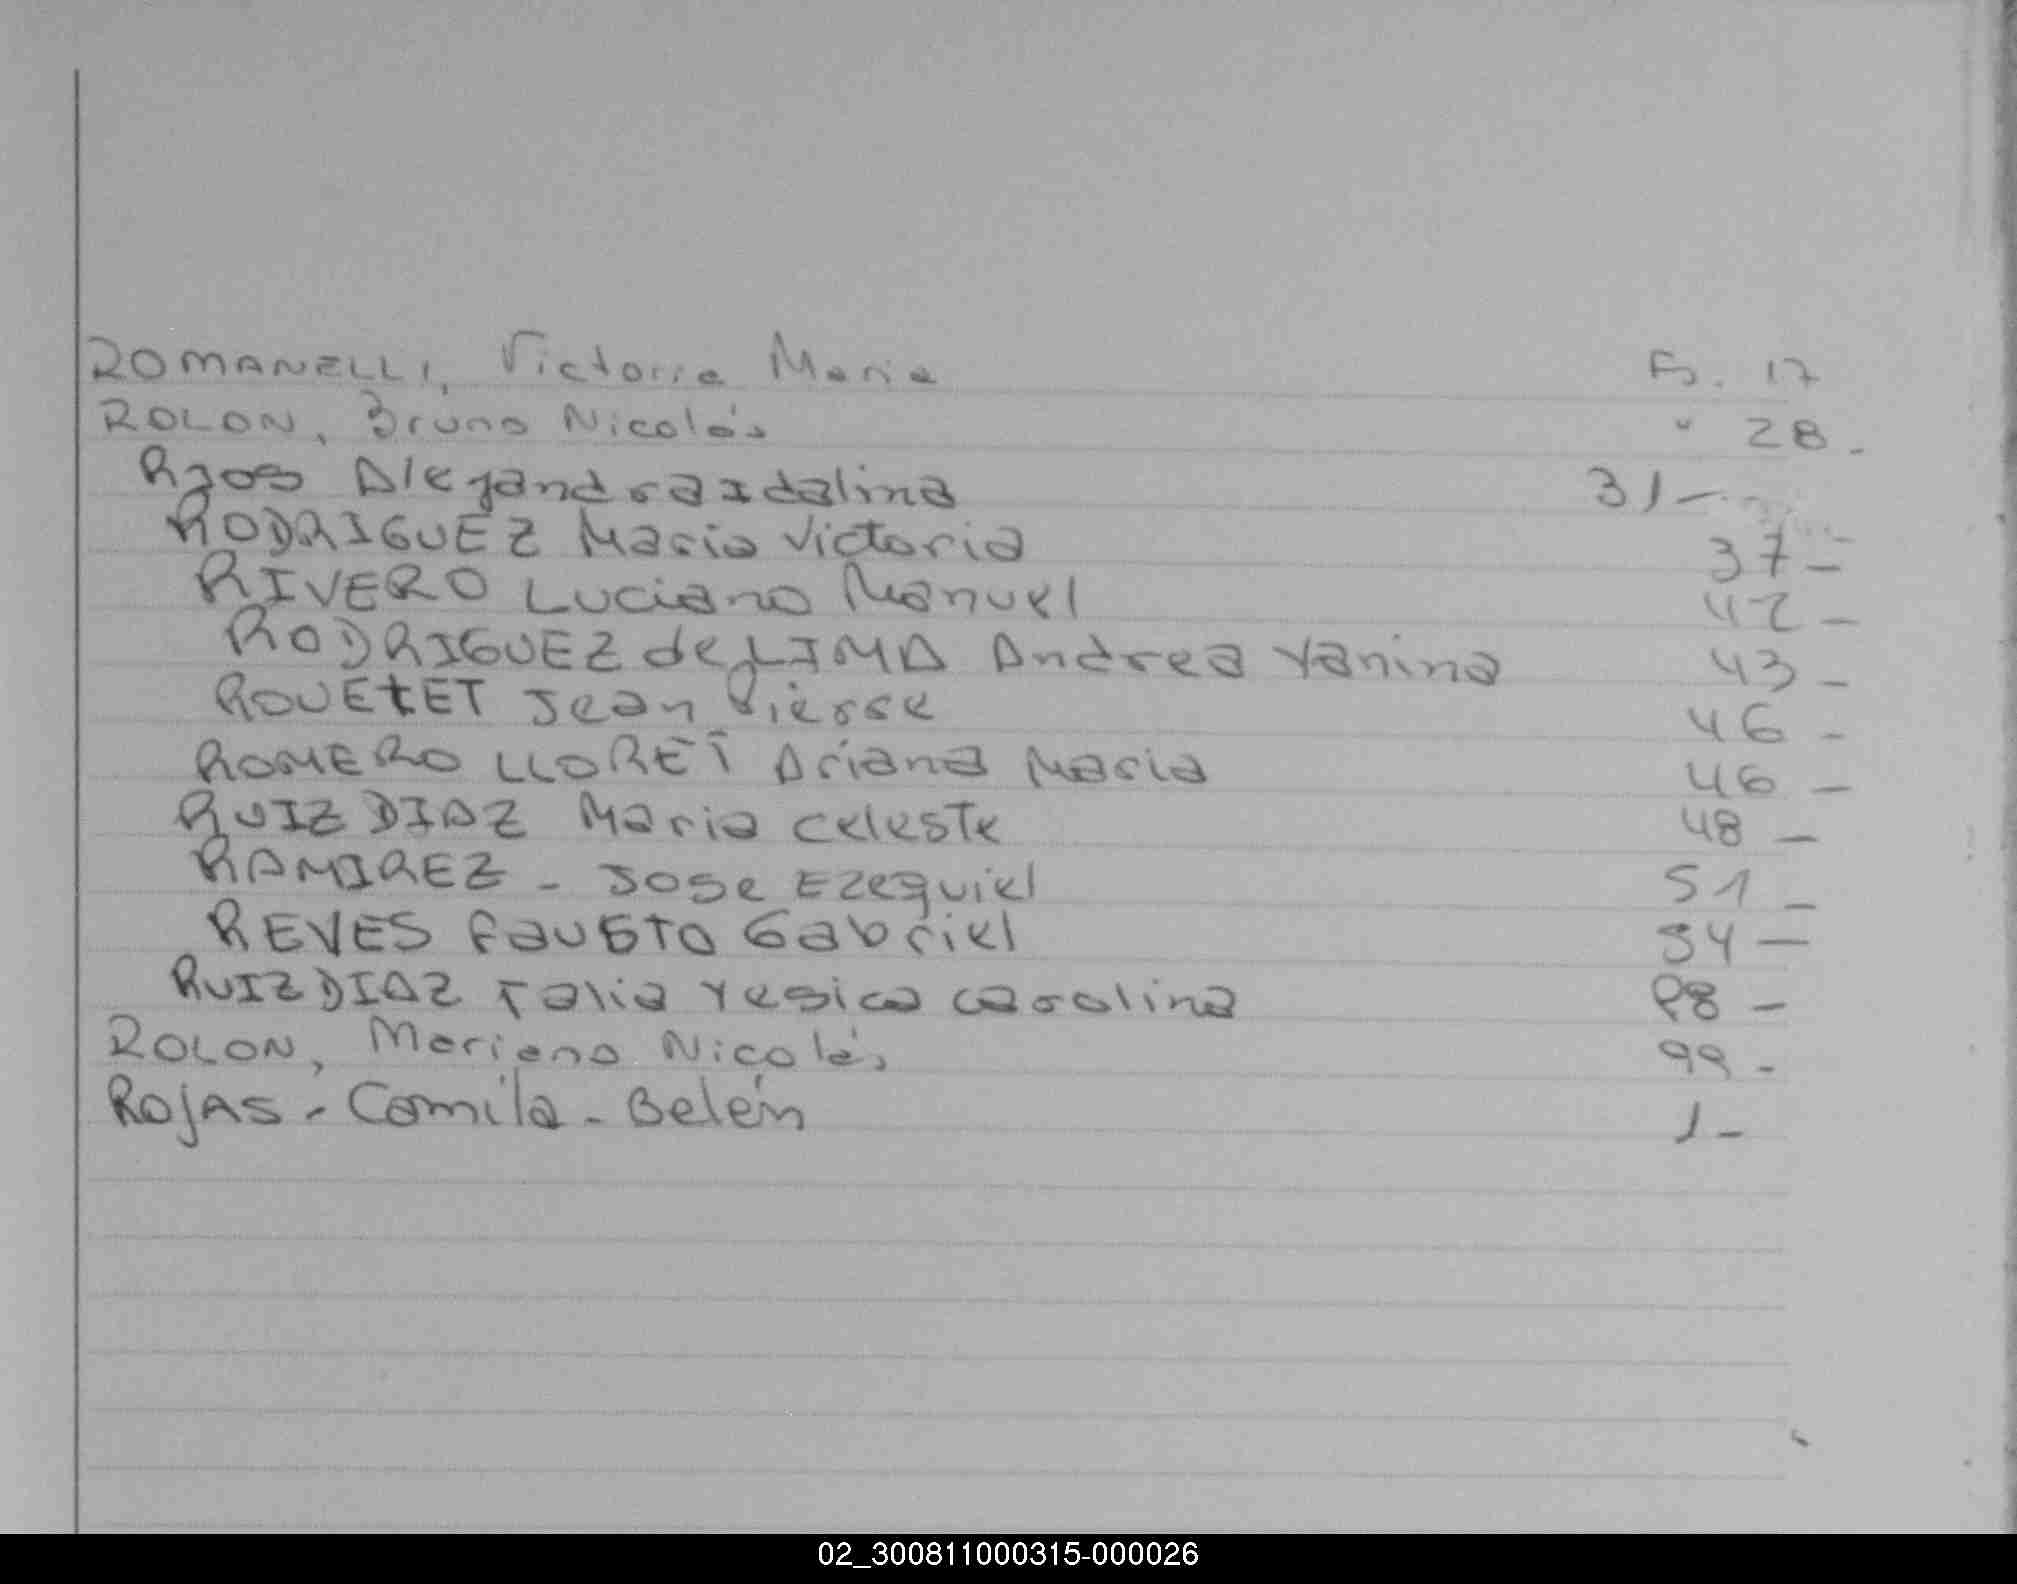 ROMANELLI, Victoria Maria Fs. 17
ROLON, Bruno Nicolás " 28.
RJOS Alejandra Idalina 31-
RODRIGUEZ Maria Victoria 37-
RIVERO Luciano Manuel 42-
RODRIGUEZ de LIMA Andrea Yanina 43-
ROUEtET Jean Pierre 46-
ROMERO LLORET Ariana Maria 46-
RUIZ DIAZ Maria Celeste 48-
RAMIREZ - Jose Ezequiel 51-
REVES Fausto Gabriel
RUIZ DIAZ Talia Yesica Carolina
ROLON, Mariano Nicolás 99-
ROJAS - Camila - Belén 1-
02_300811000315-000026